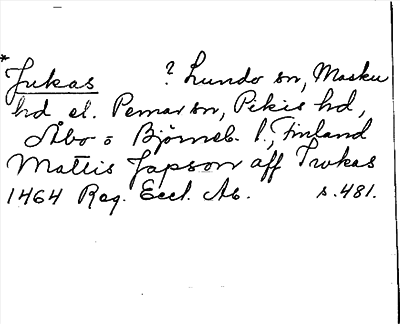 * Jukas ? Lundo sn, Masku
hd el. Pemar sn, Pikis hd,
Åbo o Björneb. l., Finland
Mattis Japson aff Jwkas
1464 Reg. Eccl. Ab. s. 481.